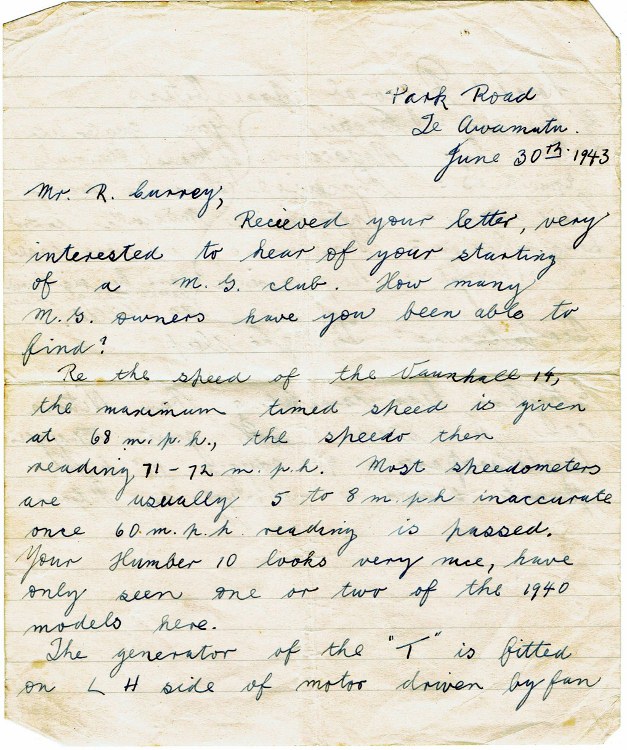 Park Road
Te Awamutu.
June 30TH. 1943
Mr. R. Currey,
Recieved your letter, very
interested to hear of your starting
of a M.G. club. How many
M.G. owners have you been able to
find?
Re the speed of the Vauxhall 14,
the maximum timed speed is given
at 68 m.p.h., the speedo then
reading 71-72 m.p.h. Most speedometers
are usually 5 to 8 m.p.h inaccurate
once 60 m.p.h. reading is passed.
Your Humber 10 looks very nice, have
only seen one or two of the 1940
models here.
The generator of the "T" is fitted
on L H side of motor driven by fan